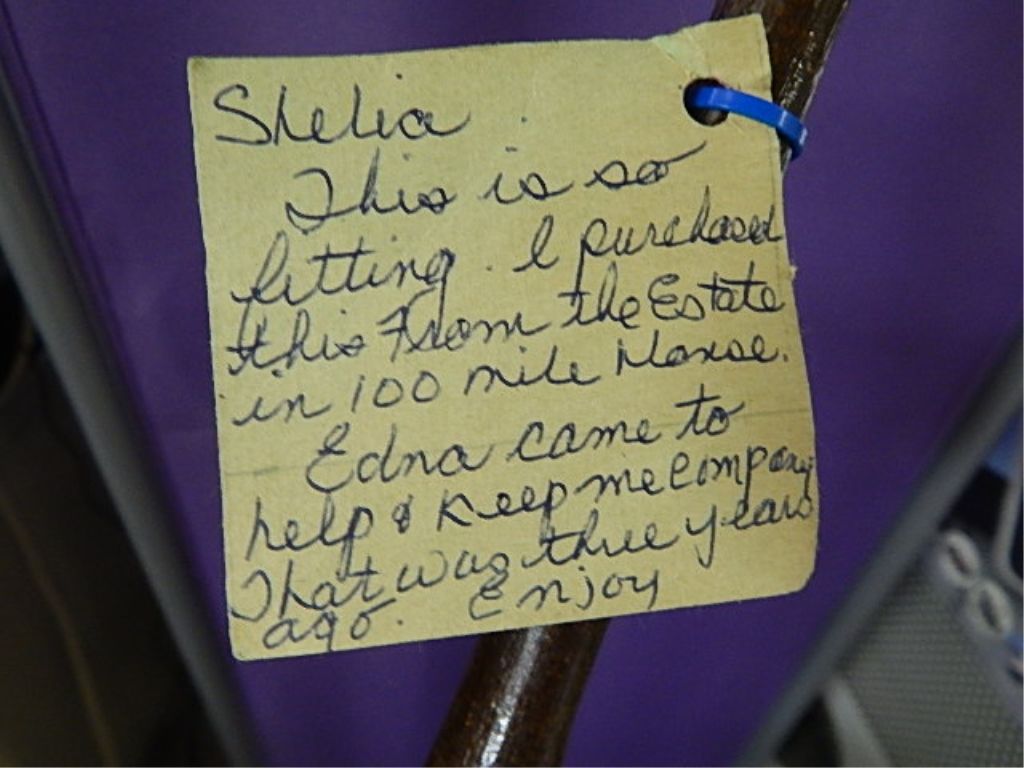 Shelia
This is so
fitting. I purchased
this From the Estate
in 100 mile House.
Edna came to
help & Keep me Company
That was three years
ago. Enjoy